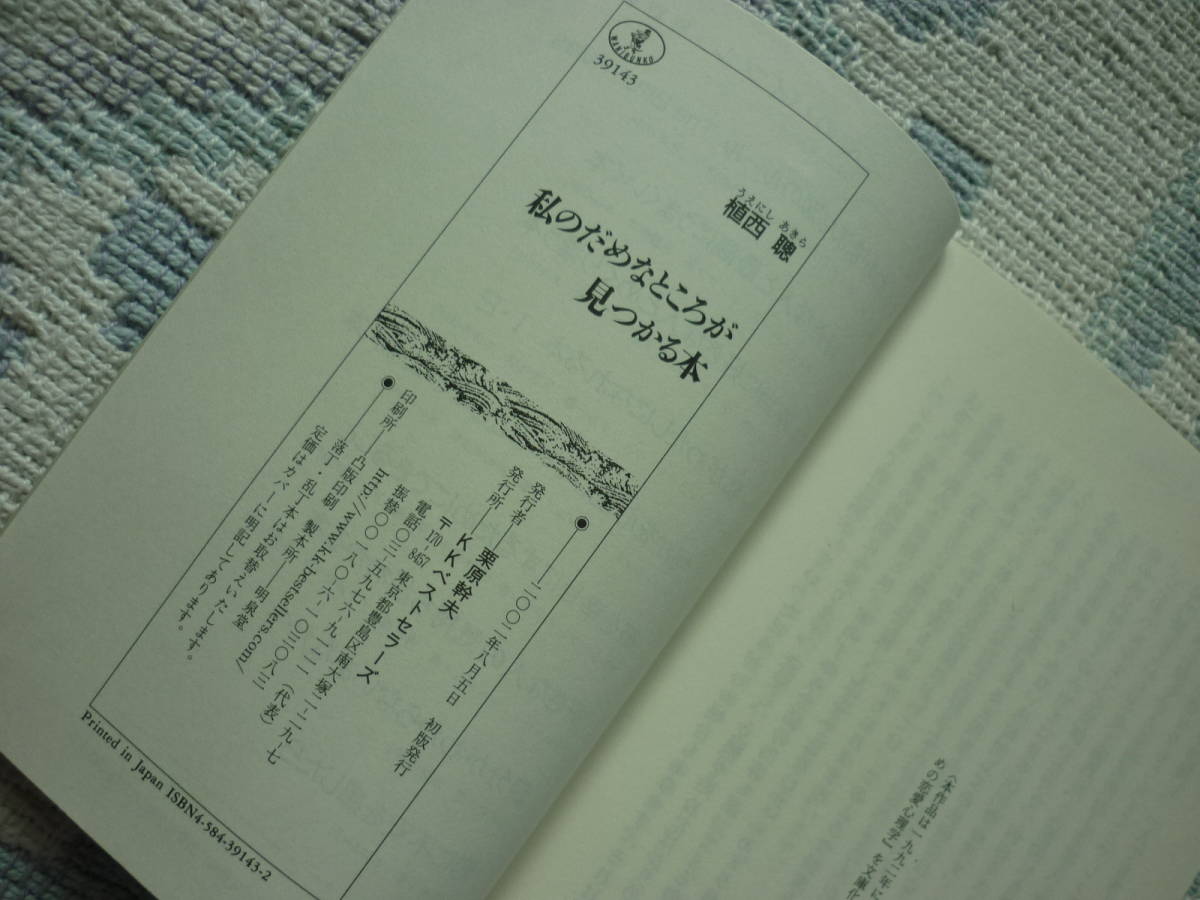 WANIBUNKO
39143
うえにし あきら
植西 聰
私のだめなところが
見つかる本
二〇〇二年八月五日 初版発行
発行者――栗原幹夫
発行所――KKベストセラーズ
〒170-8457 東京都豊島区南大塚二-二九-七
電話〇三-五九七六-九一二一(代表)
振替〇〇一八〇-六-一〇三〇八三
http://www.kk-bestsellers.com/
印刷所――凸版印刷 製本所――明泉堂
落丁・乱丁本はお取替えいたします。
定価はカバーに明記してあります。
Printed in Japan ISBN4-584-39143-2
(本作品は一九九二年に
めの恋愛心理学』を文庫化